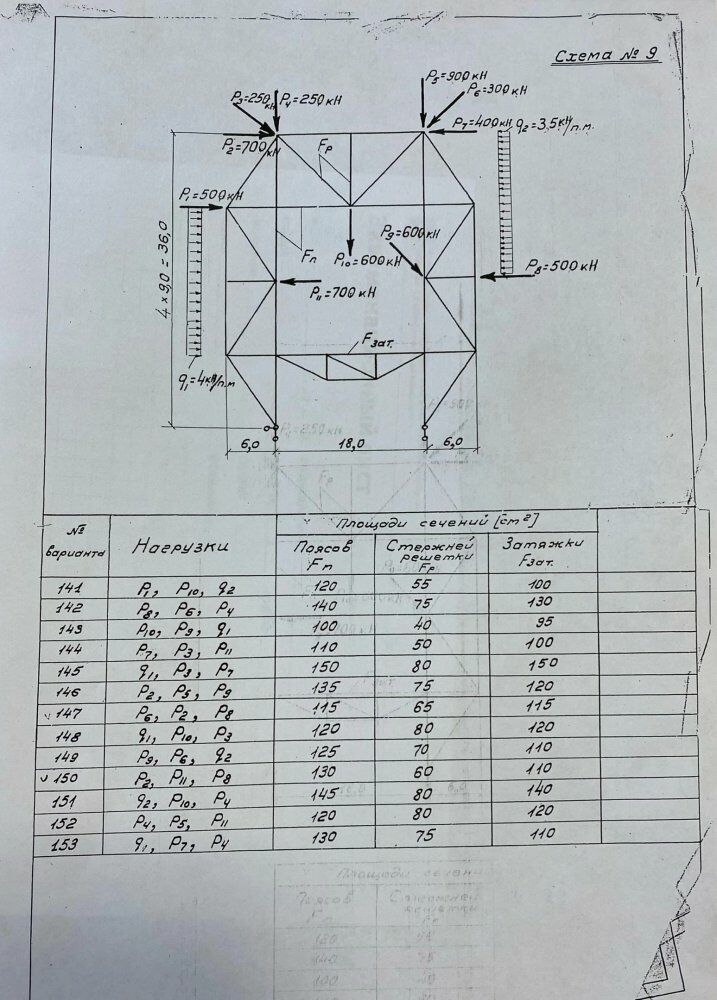 Схема № 9
P5=900кН
P3=250кН
P4=250кН
P6=300кН
P2=700кН
P7=400кН
q2=3,5кН/п.м.
Fр
P1=500кН
P9=600кН
Fп
P10=600кН
P8=500кН
P11=700кН
4×9,0=36,0
Fзат.
q1=4кН/п.м
6,0 18,0 6,0
№ варианта Нагрузки Площади сечений [см²]
Поясов Fп Стержней решетки Fр Затяжки Fзат.
141 P1, P10, q2 120 55 100
142 P8, P6, P4 140 75 130
143 P10, P9, q1 100 40 95
144 P7, P3, P11 110 50 100
145 q1, P3, P7 150 80 150
146 P2, P5, P9 135 75 120
147 P6, P2, P8 115 65 115
148 q1, P10, P3 120 80 120
149 P9, P6, q2 125 70 110
150 P2, P11, P8 130 60 110
151 q2, P10, P4 145 80 140
152 P4, P5, P11 120 80 120
153 q1, P7, P4 130 75 110